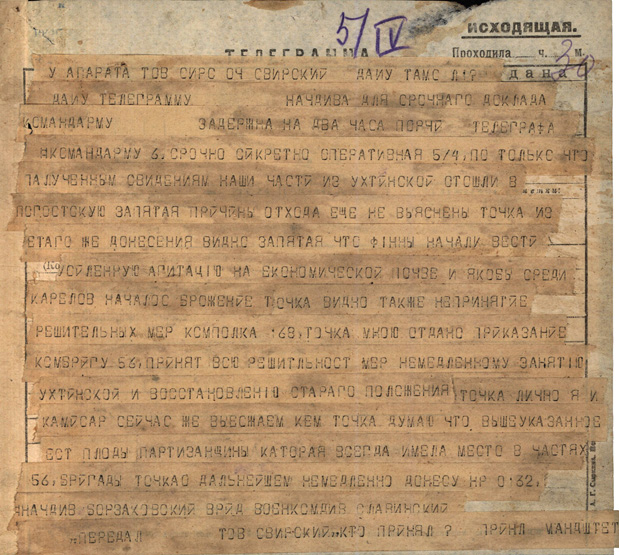 5/IV
ИСХОДЯЩАЯ.
ТЕЛЕГРАММА
Проходила ч. м.
У АПАРАТА ТОВ СИРС ОЧ СВИРСКИЙ ДАЙУ ТАМС Л!?
дана
ДАЙУ ТЕЛЕГРАММУ НАЧДИВА ДЛЯ СРОЧНАГО ДОКЛАДА
КОМАНДАРМУ ЗАДЕРЖНА НА ДВА ЧАСА ПОРЧЙ ТЕЛЕГРАФА
НКОМАНДАРМУ 6, СРОЧНО СЙКРЕТНО ОПЕРАТИВНАЯ 5/4, ПО ТОЛЬКЕ ЧТО
ПАЛУЧЕННЫМ СВИДЕНИЯМ НАШИ ЧАСТИ ИЗ УХТЙНСКОЙ ОТОШЛИ В
ПОГОСТСКУЮ ЗАПЯТАЯ ПРЙЧЙНЫ ОТХОДА ЕЩЕ НЕ ВЫЯСНЕНЫ ТОЧКА ИЗ
ЕТАГО ЖЕ ДОНЕСЕНИЯ ВИДНО ЗАПЯТАЯ ЧТО ФІННЫ НАЧАЛИ ВЕСТЙ
УСЙЛЕННУЮ АГИТАЦІЮ НА ЕКОНОМИЧЕСКОЙ ПОЧВЕ И ЯКОБУ СРЕДИ
КАРЕЛОВ НАЧАЛОС БРОЖЕНИЕ ТОЧКА ВИДНО ТАКЖЕ НЕПРИНЯТИЕ
РЕШИТЕЛЬНЫХ МЕР КОМПОЛКА :68, ТОЧКА МНОЮ ОТДАНО ПРЙКАЗАНИЕ
КОМБРЙГУ 56, ПРЙНЯТ ВСЮ РЕШИТЛЬНОСТ МЕР НЕМЕДЛЕННОМУ ЗАНЯТІЮ
УХТЙНСКОЙ И ВОССТАНОВЛЕНІЮ СТАРАГО ПОЛОЖЕНИЯ ТОЧКА ЛИЧНО Я И
КАМЙСАР СЕЙЧАС ЖЕ ВЫЕСЖАЕМ КЕМ ТОЧКА ДУМАЮ ЧТО ВЫШЕУКАЗАННОЕ
ЕСТ ПЛОДЫ ПАРТИЗАНЩИНЫ КАТОРАЯ ВСЕГДА ИМЕЛА МЕСТО В ЧАСТЯХ
56, БРЙГАДЫ ТОЧКАО ДАЛЬНЕЙШЕМ НЕМЕДЛЕННО ДОНЕСУ НР 0:32,
НАЧДИВ БОРЗАКОВСКИЙ ВРЙД ВОЕНКОМДИВ СЛАВИНСКИЙ
ПЕРЕДАЛ ТОВ СВИРСКИЙ КТО ПРЙНЯЛ ? ПРЙНЛ МАНДШТЕТ